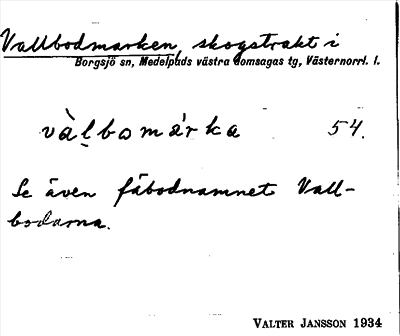 Vallbodmarken, skogstrakt i
Borgsjö sn, Medelpads västra domsagas tg, Västernorrl. l.
vàl̮bomárka 54.
Se även fäbodnamnet Vall-
bodarna.
VALTER JANSSON 1934